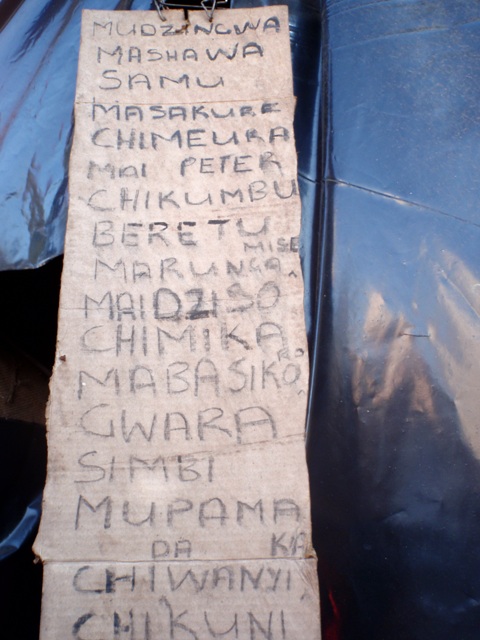 MUDZINGWA
MASHAWA
SAMU
MASAKURE
CHIMEURA
MAI PETER
CHIKUMBU
BERETU
MISE
MARUNGA.
MAIDZISO
CHIMIKA
RO.
MABASIKO,
GWARA
SIMBI
MUPAMA
DA KA
CHIWANYI,
CHIKUNI